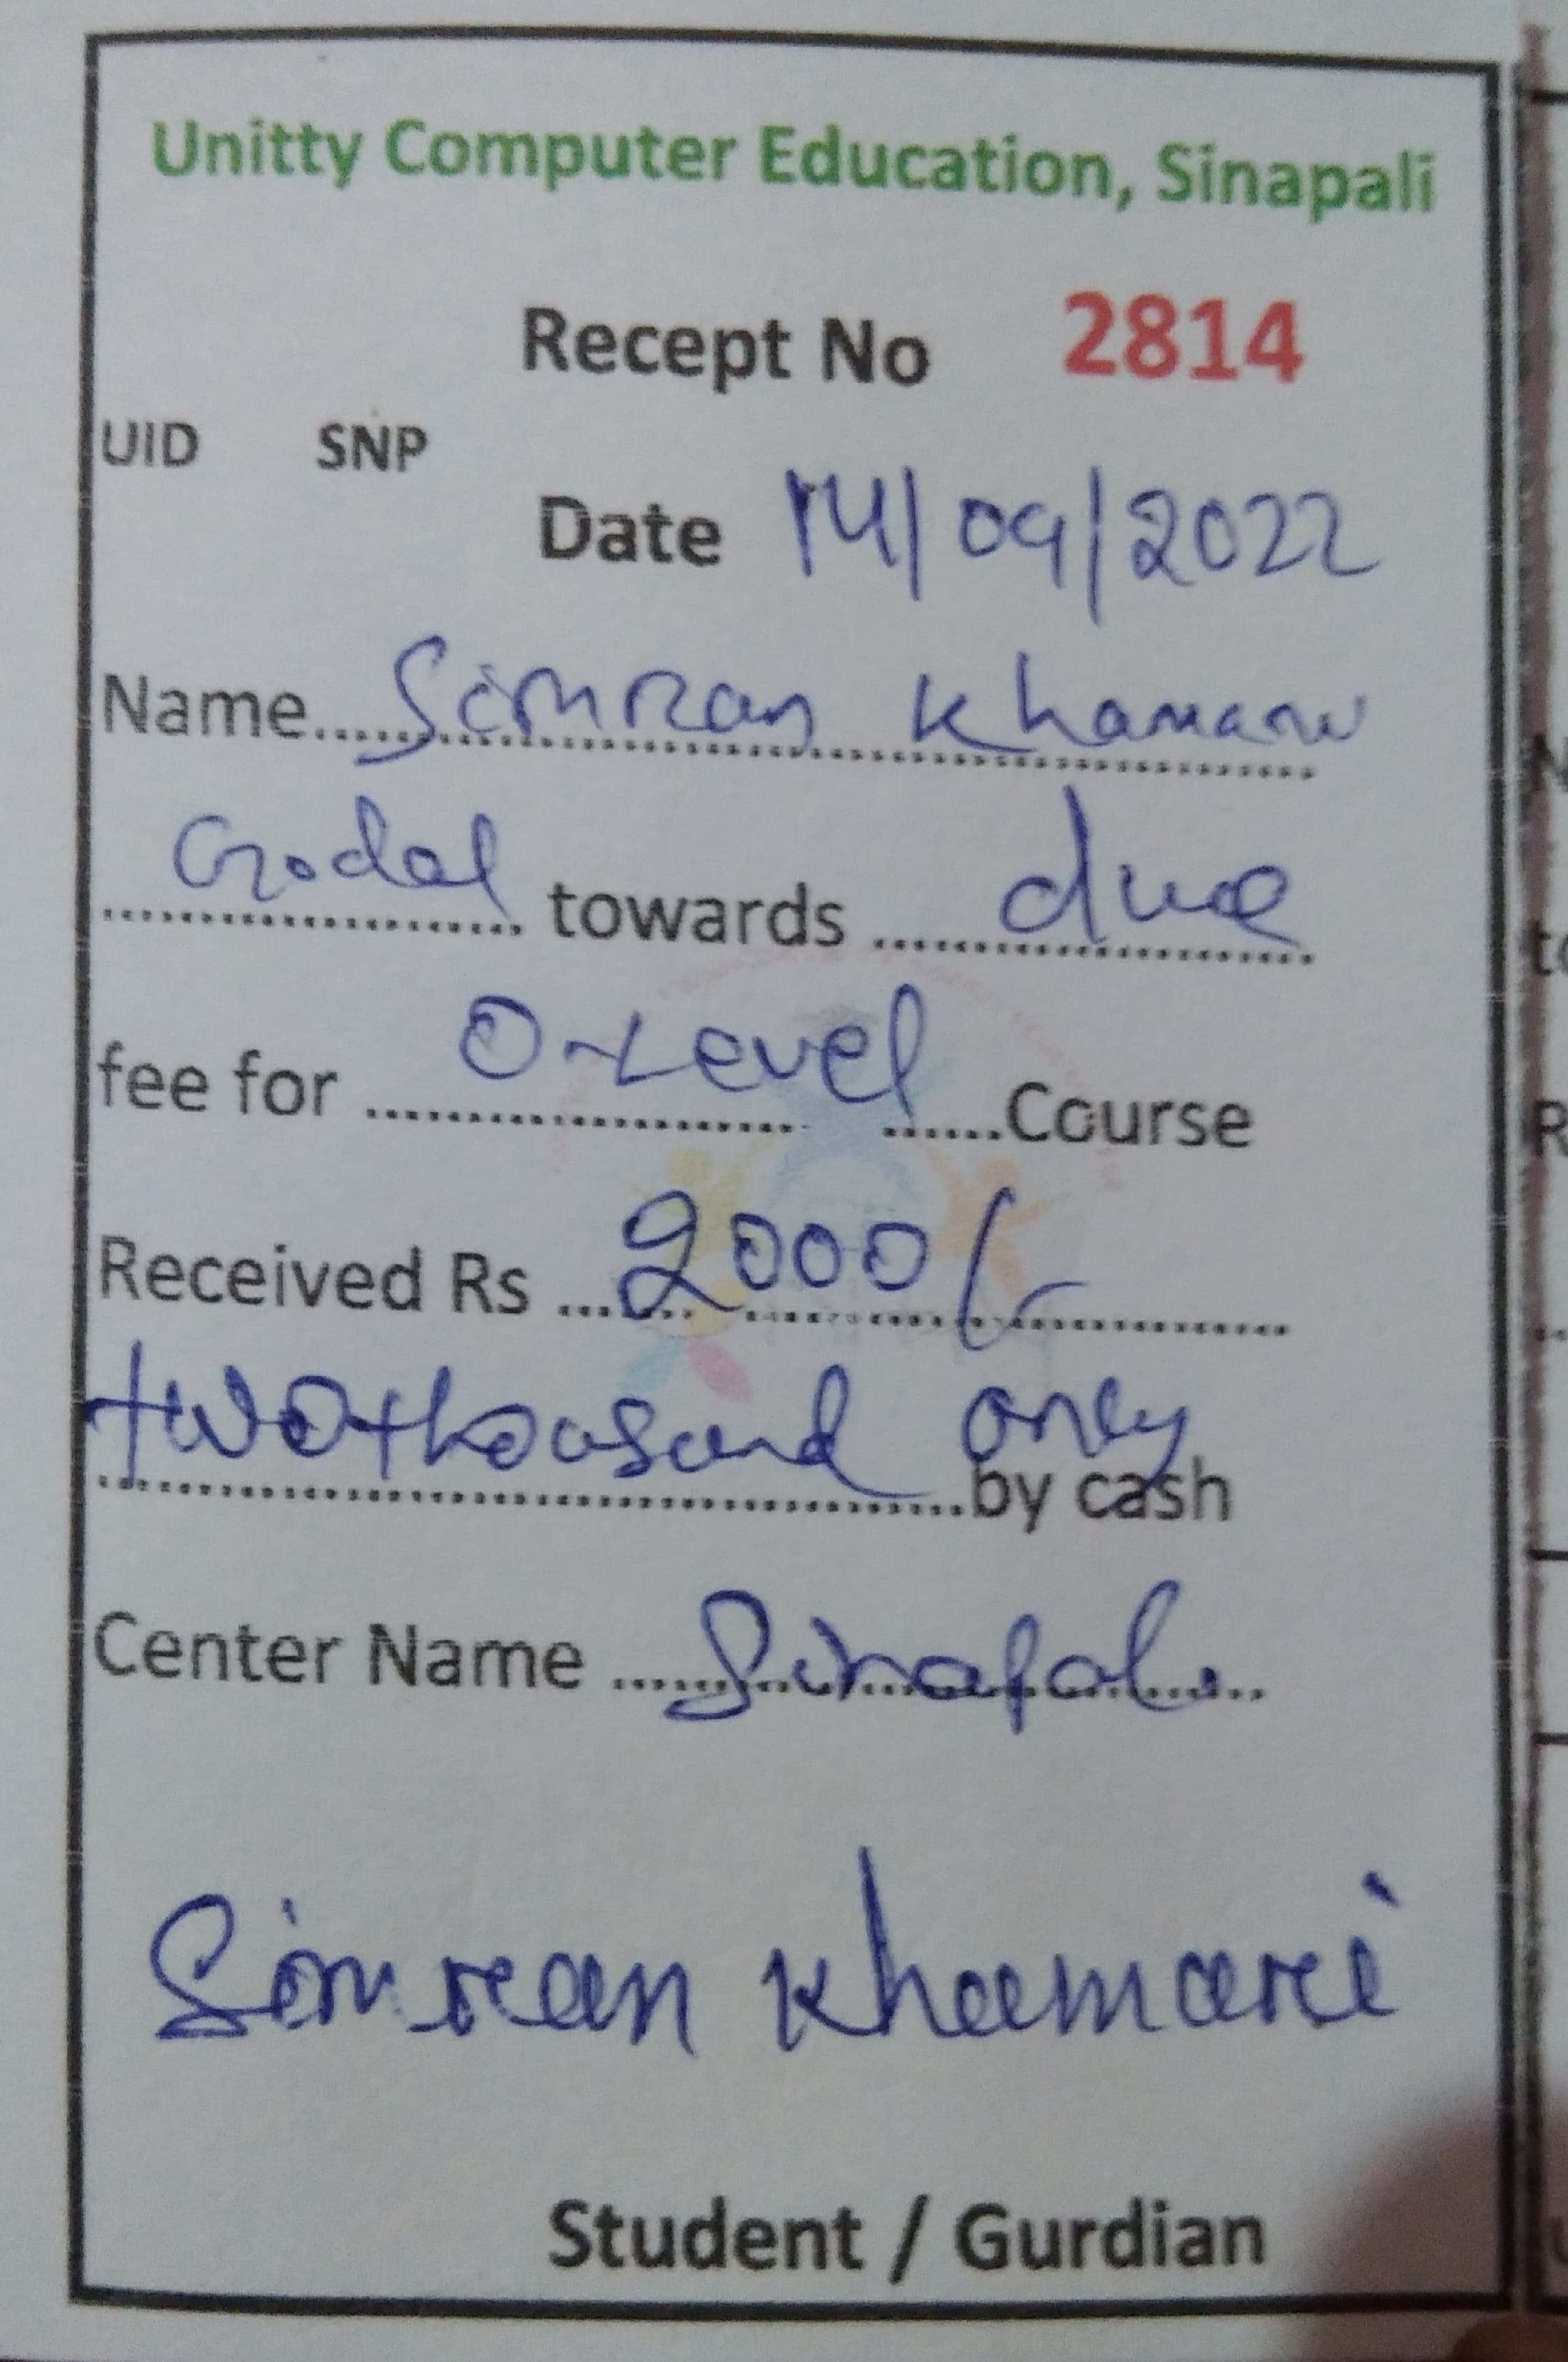 Unitty Computer Education, Sinapali
Recept No 2814
UID SNP
Date 14/09/2022
Name Simran Khamari
Godal towards due
fee for O-Level Course
Received Rs 2000/-
two thousand only by cash
Center Name Sinapali
Simran Khamari
Student / Gurdian